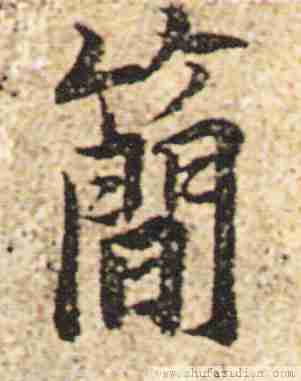 簡
www.shufazidian.com